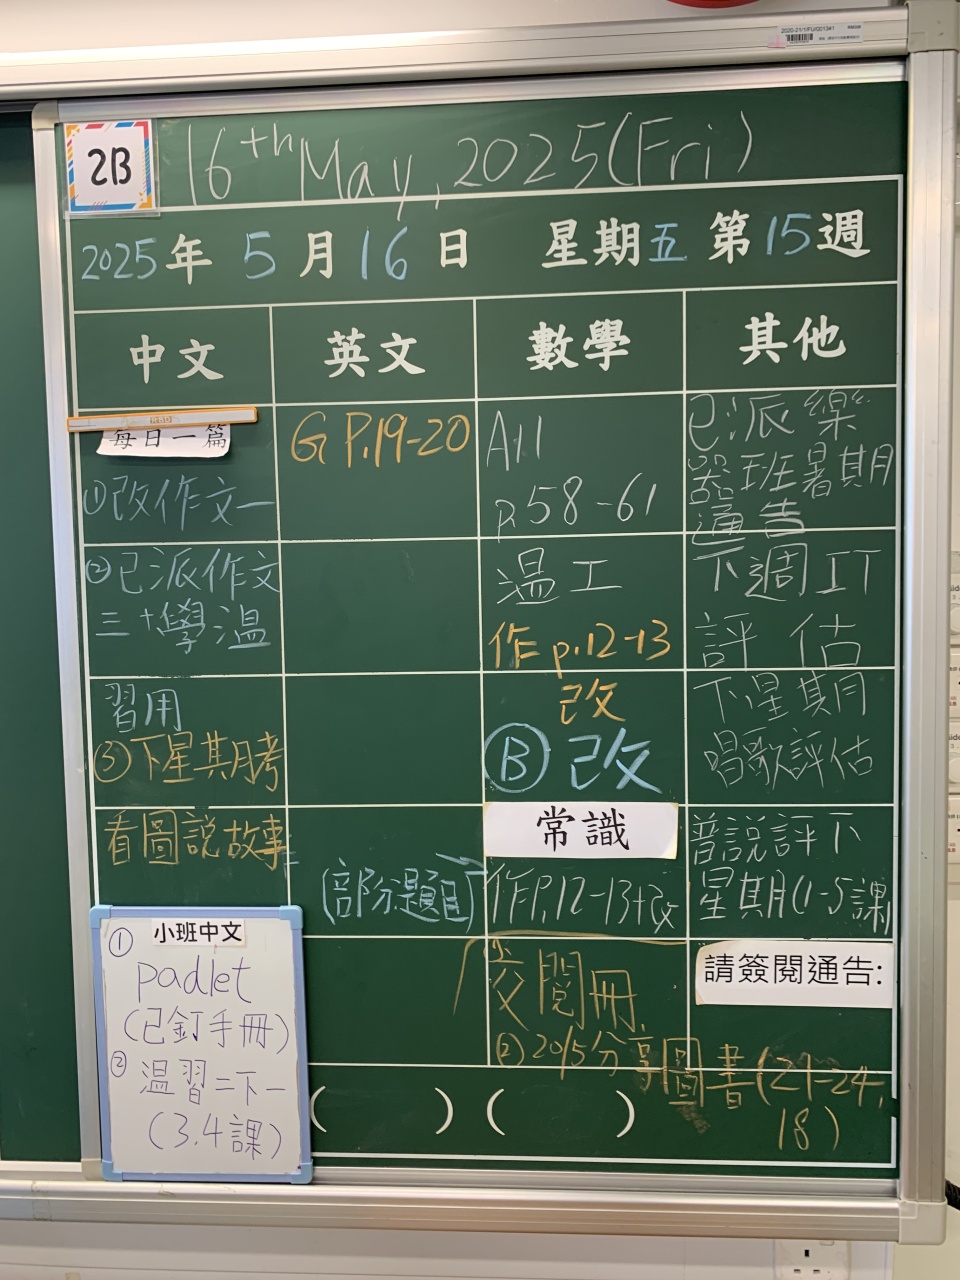 2020-21/1/FU/001341
2B
16th May, 2025(Fri)
2025年5月16日 星期五 第15週
中文
英文
數學
其他
每日一篇
①改作文一
②已派作文
三+學溫
習用
③下星期考
看圖說故事
小班中文
① padlet
(已釘手冊)
② 溫習二下一
(3.4課)
G P.19-20
(部分題目)
A11
p.58-61
溫工
作 p.12-13
改
Ⓑ 改
常識
作P.12-13+改
①交閱冊
② 20/5分享圖書(21-24,
18)
已派樂
器班暑期
通告
下週IT
評估
下星期
唱歌評估
普說評下
星期(1-5課)
請簽閱通告:
( ) ( )